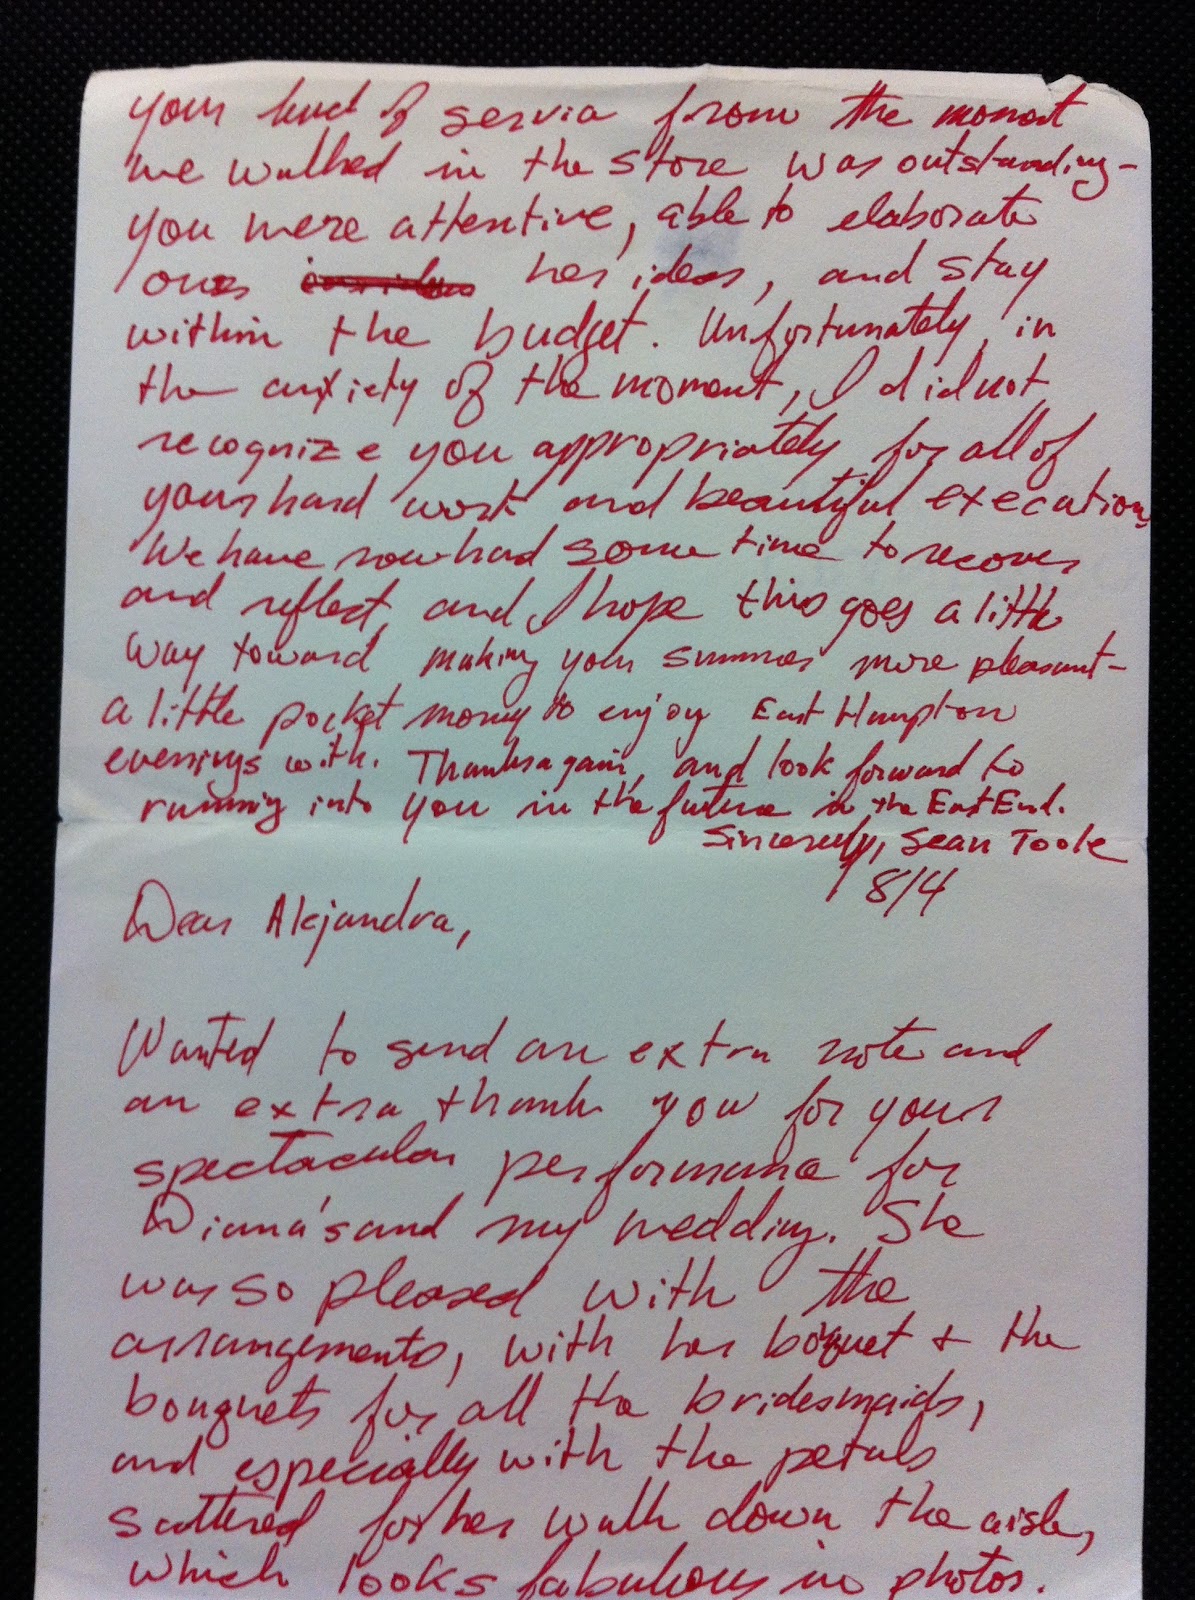 your kind of service from the moment
we walked in the store was outstanding-
you were attentive, able to elaborate
on her ideas, and stay
within the budget. Unfortunately, in
the anxiety of the moment, I did not
recognize you appropriately for all of
your hard work and beautiful execution.
We have now had some time to recover
and reflect, and I hope this goes a little
way toward making your summer more pleasant-
a little pocket money to enjoy East Hampton
evenings with. Thanks again, and look forward to
running into you in the future in the East End.
Sincerely, Sean Toole
8/4
Dear Alejandra,
Wanted to send an extra note and
an extra thank you for your
spectacular performance for
Diana's and my wedding. She
was so pleased with the
arrangements, with her boquet + the
bouquets for all the bridesmaids,
and especially with the petals
scattered for her walk down the aisle,
which looks fabulous in photos.